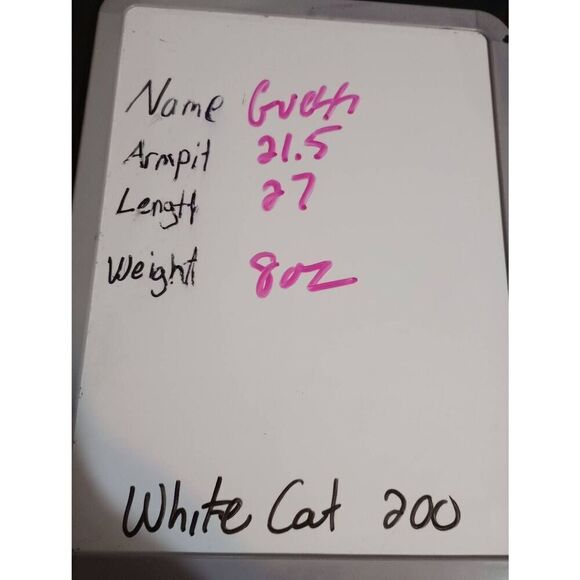 Name Gucci
Armpit 21.5
Length 27
Weight 8oz
White Cat 200